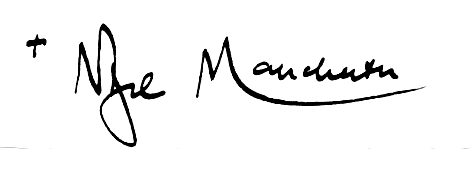 + Nigel Manchester